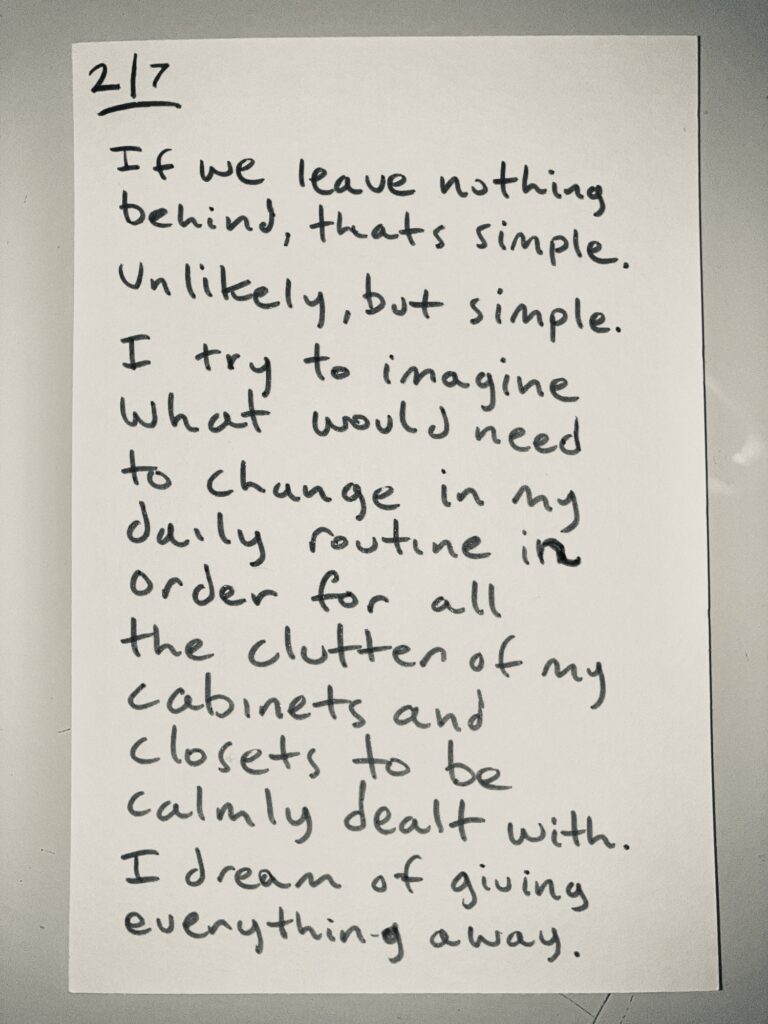 2/7
If we leave nothing
behind, thats simple.
Unlikely, but simple.
I try to imagine
what would need
to change in my
daily routine in
order for all
the clutter of my
cabinets and
closets to be
calmly dealt with.
I dream of giving
everything away.